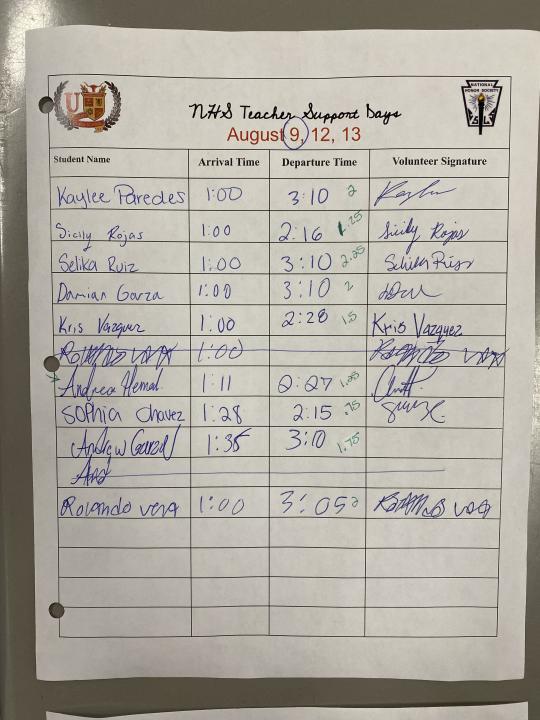 U
NATIONAL
HONOR SOCIETY
NHS Teacher Support Days
August 9, 12, 13
Student Name Arrival Time Departure Time Volunteer Signature
Kaylee Paredes 1:00 3:10 2
Sicily Rojas 1:00 2:16 1.25 Sicily Rojas
Selika Ruiz 1:00 3:10 2.25 Selika Ruiz
Damian Garza 1:00 3:10 2
Kris Vazquez 1:00 2:28 1.5 Kris Vazquez
1:00
Andrea Hernal. 1:11 2:27 1.25
Sophia Chavez 1:28 2:15 .75
Andrew Garza 1:35 3:10 1.75
And
Rolando vera 1:00 3:05 2